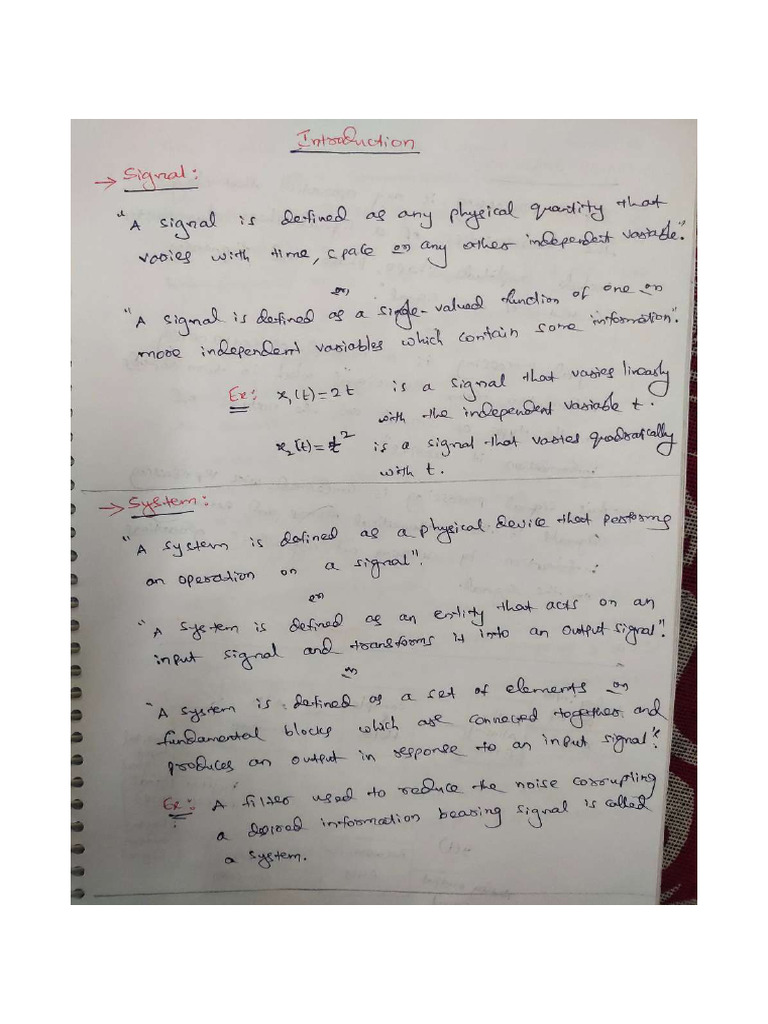 Introduction
→ Signal:
"A signal is defined as any physical quantity that
varies with time, space or any other independent variable".
or
"A signal is defined as a single-valued function of one or
more independent variables which contain some information".
Ex: x₁(t)=2t is a signal that varies linearly
with the independent variable t.
x₂(t)=t² is a signal that varies quadratically
with t.
→ System:
"A system is defined as a physical device that performs
an operation on a signal".
or
"A system is defined as an entity that acts on an
input signal and transforms it into an output signal".
or
"A system is defined as a set of elements or
fundamental blocks which are connected together and
produces an output in response to an input signal".
Ex: A filter used to reduce the noise corrupting
a desired information bearing signal is called
a system.